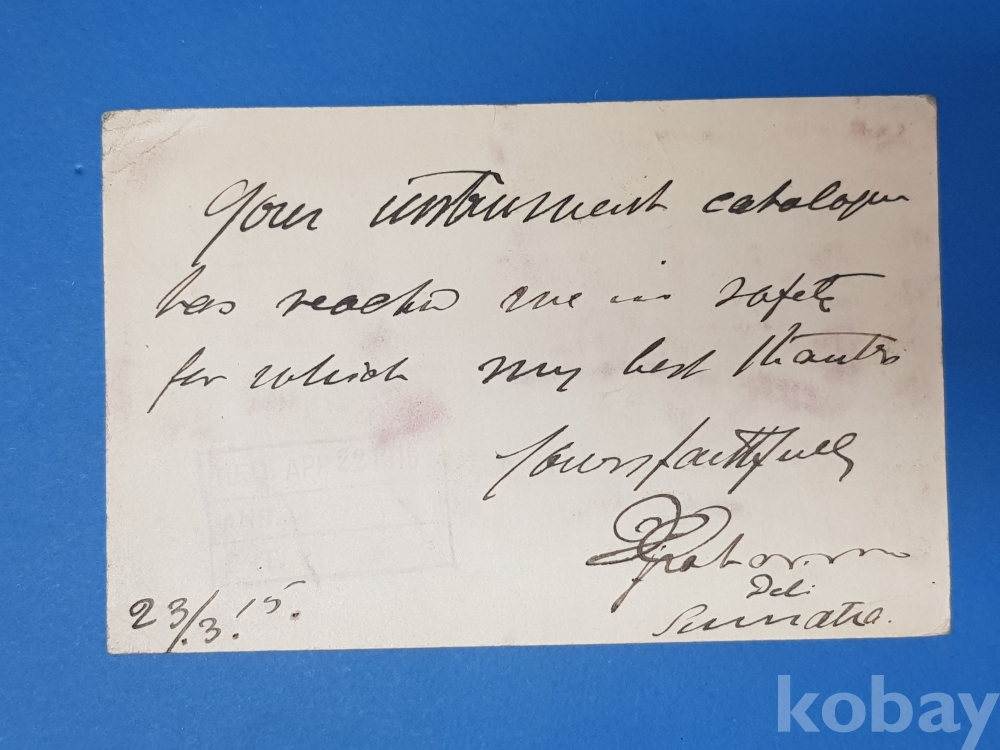 Your instrument catalogue
has reached me in safety
for which my best thanks
Yours faithfully
Deli
Sumatra.
23/3.'15.
APR 22 1915
kobay